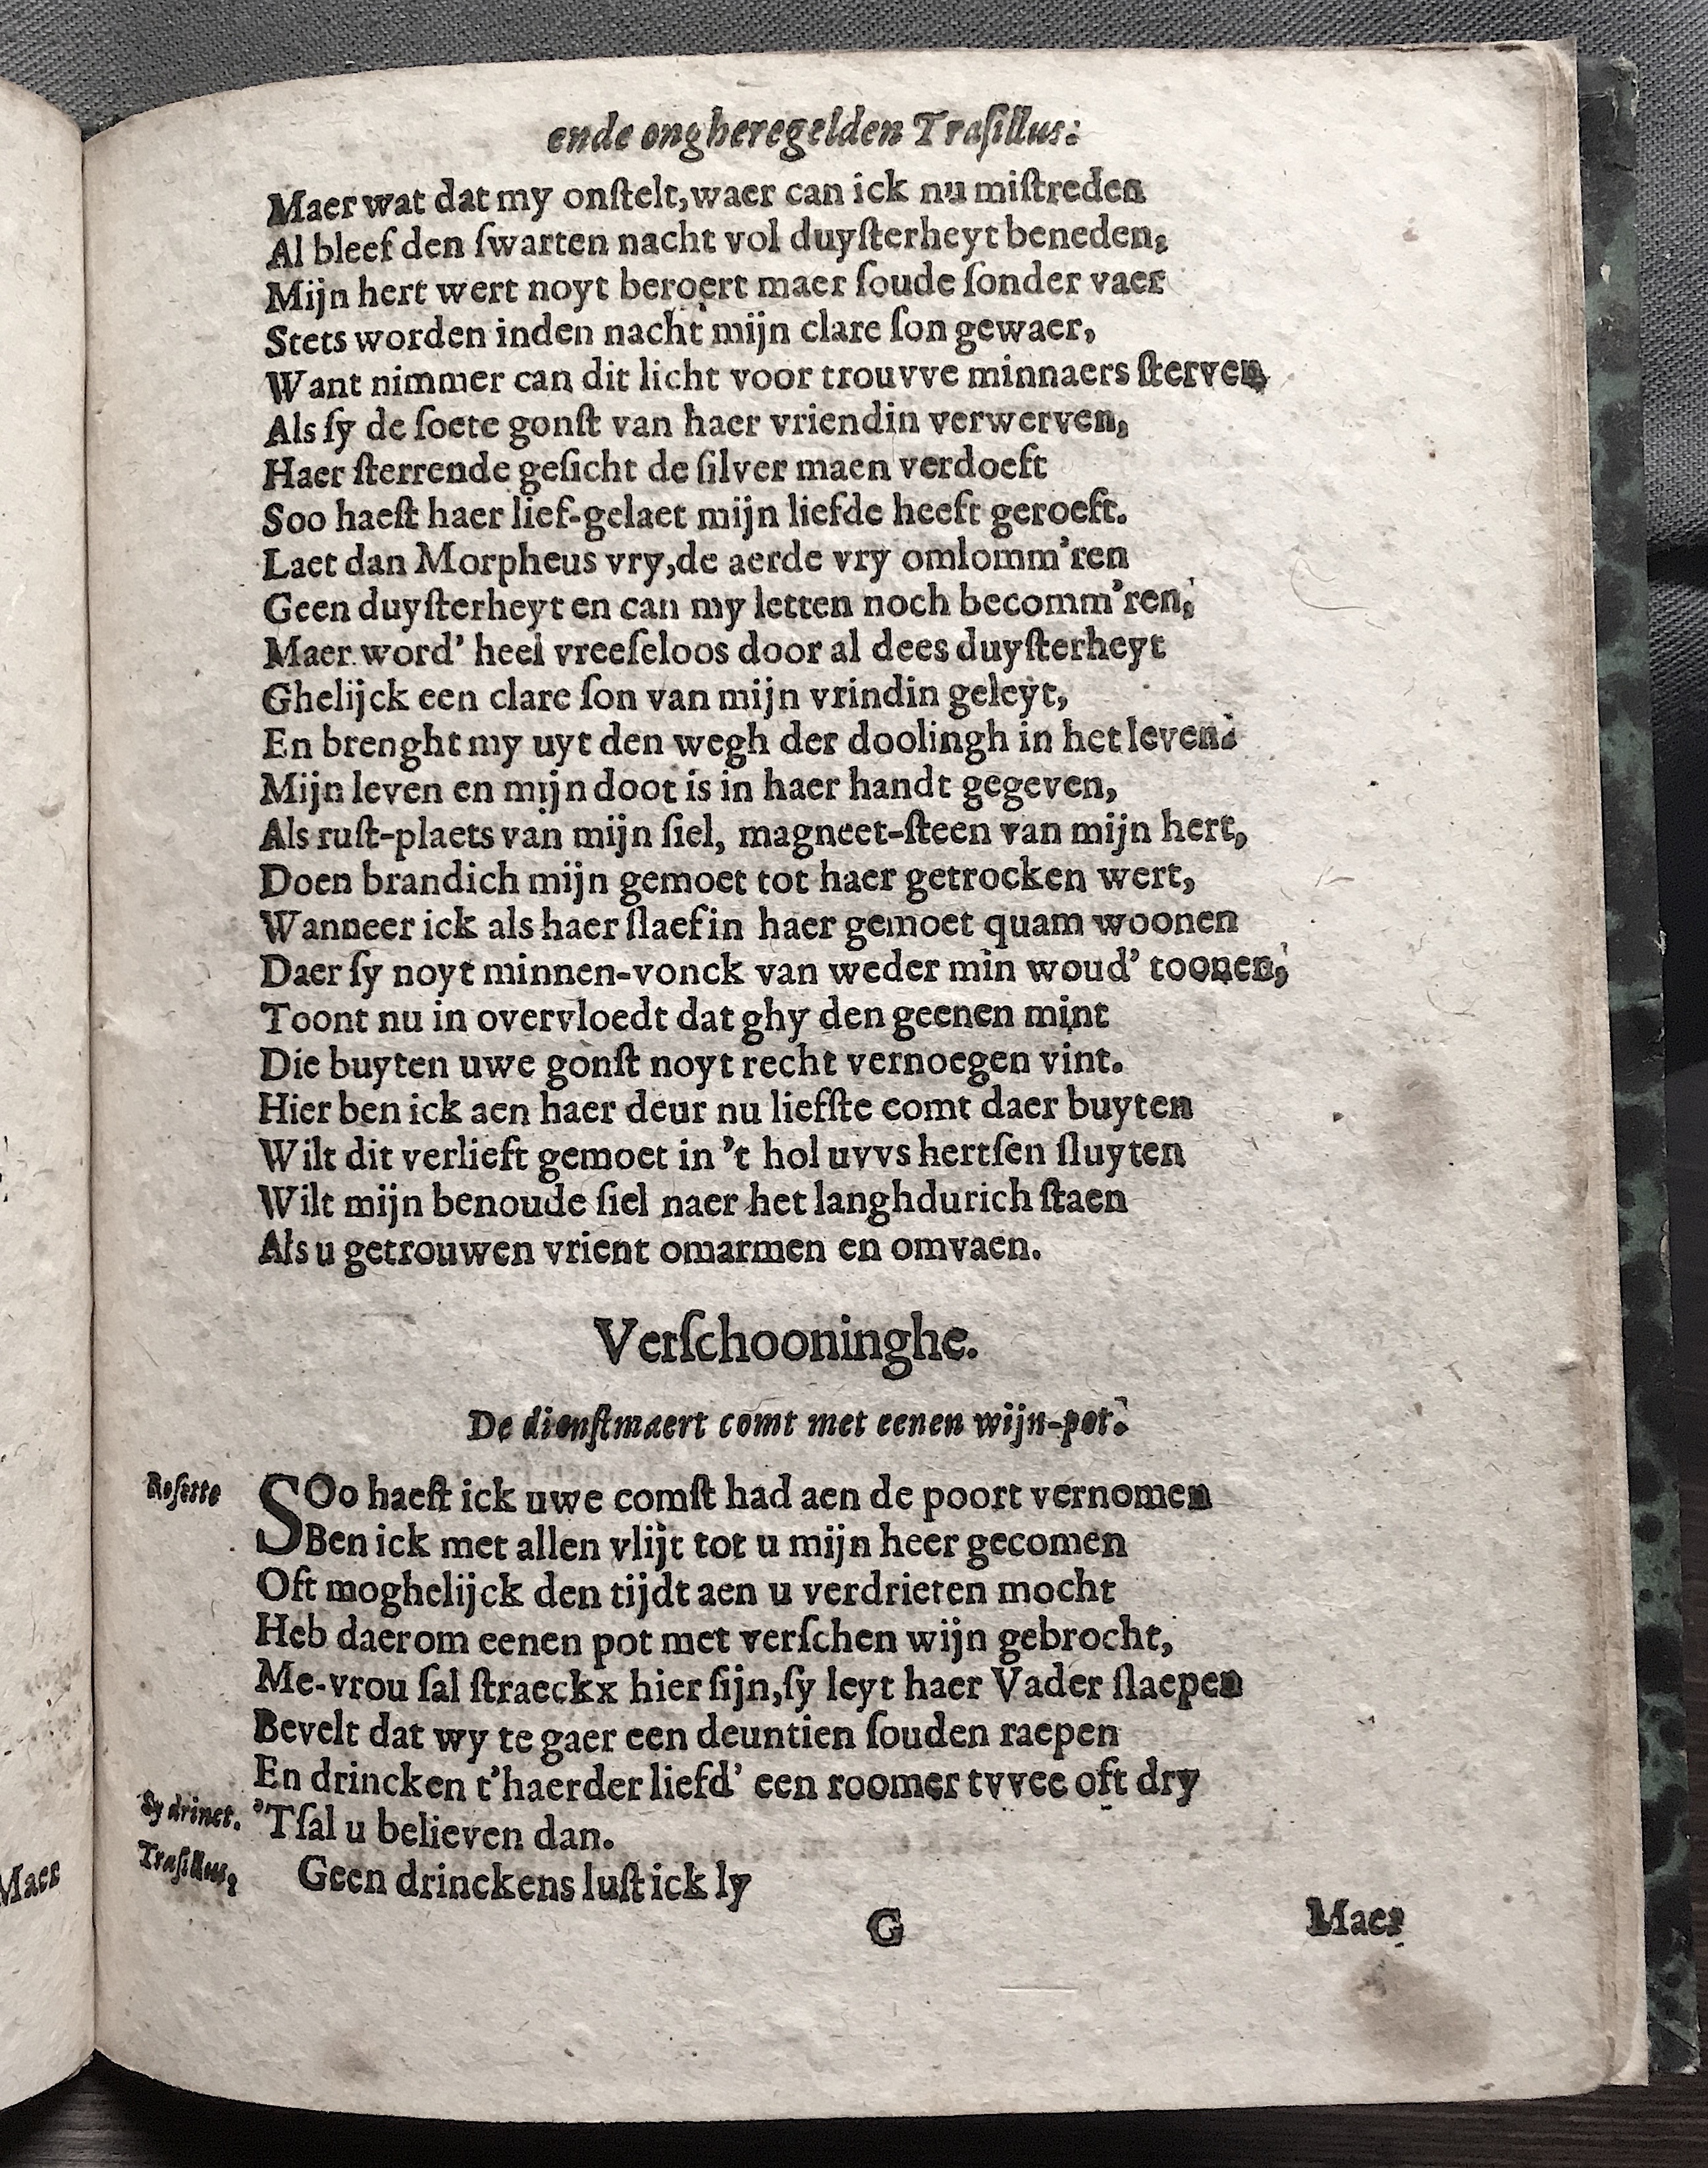 ende ongheregelden Traſillus.
Maer wat dat my onſtelt, waer can ick nu miſtreden
Al bleef den ſwarten nacht vol duyſterheyt beneden,
Mijn hert wert noyt beroert maer ſoude ſonder vaer
Stets worden inden nacht mijn clare ſon gewaer,
Want nimmer can dit licht voor trouvve minnaers ſterven
Als ſy de ſoete gonſt van haer vriendin verwerven,
Haer ſterrende geſicht de ſilver maen verdoeft
Soo haeſt haer lief-gelaet mijn liefde heeft geroeft.
Laet dan Morpheus vry, de aerde vry omlomm'ren
Geen duyſterheyt en can my letten noch becomm'ren,
Maer word' heel vreeſeloos door al dees duyſterheyt
Ghelijck een clare ſon van mijn vrindin geleyt,
En brenght my uyt den wegh der doolingh in het leven.
Mijn leven en mijn doot is in haer handt gegeven,
Als ruſt-plaets van mijn ſiel, magneet-ſteen van mijn hert,
Doen brandich mijn gemoet tot haer getrocken wert,
Wanneer ick als haer ſlaef in haer gemoet quam woonen
Daer ſy noyt minnen-vonck van weder min woud' toonen,
Toont nu in overvloedt dat ghy den geenen mint
Die buyten uwe gonſt noyt recht vernoegen vint.
Hier ben ick aen haer deur nu liefſte comt daer buyten
Wilt dit verlieft gemoet in 't hol uvvs hertſen ſluyten
Wilt mijn benoude ſiel naer het langhdurich ſtaen
Als u getrouwen vrient omarmen en omvaen.
Verſchooninghe.
De dienſtmaert comt met eenen wijn-pot.
Roſette SOo haeſt ick uwe comſt had aen de poort vernomen
Ben ick met allen vlijt tot u mijn heer gecomen
Oft moghelijck den tijdt aen u verdrieten mocht
Heb daerom eenen pot met verſchen wijn gebrocht,
Me-vrou ſal ſtraeckx hier ſijn, ſy leyt haer Vader ſlaepen
Bevelt dat wy te gaer een deuntien ſouden raepen
En drincken t'haerder liefd' een roomer tvvee oft dry
Sy drinct. 'Tſal u believen dan.
Traſillus, Geen drinckens luſt ick ly
G Maer
Maer